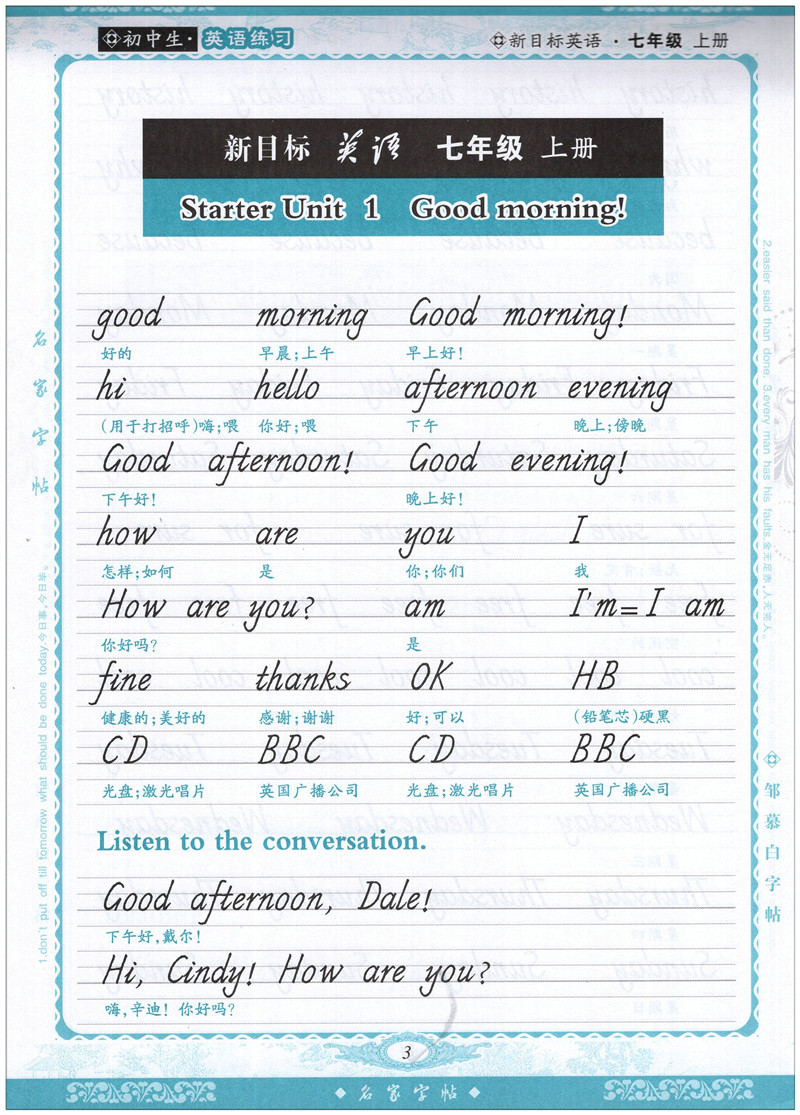 初中生·英语练习
新目标英语·七年级 上册
新目标 英语 七年级 上册
Starter Unit 1 Good morning!
good morning Good morning!
好的 早晨;上午 早上好!
hi hello afternoon evening
(用于打招呼)嗨;喂 你好;喂 下午 晚上;傍晚
Good afternoon! Good evening!
下午好! 晚上好!
how are you I
怎样;如何 是 你;你们 我
How are you? am I'm=I am
你好吗? 是
fine thanks OK HB
健康的;美好的 感谢;谢谢 好;可以 (铅笔芯)硬黑
CD BBC CD BBC
光盘;激光唱片 英国广播公司 光盘;激光唱片 英国广播公司
Listen to the conversation.
Good afternoon, Dale!
下午好,戴尔!
Hi, Cindy! How are you?
嗨,辛迪! 你好吗?
名家字帖
1.don't put off till tomorrow what should be done today.今日事,今日毕。
2.easier said than done. 3.every man has his faults.金无足赤,人无完人。
邹慕白字帖
3
名家字帖